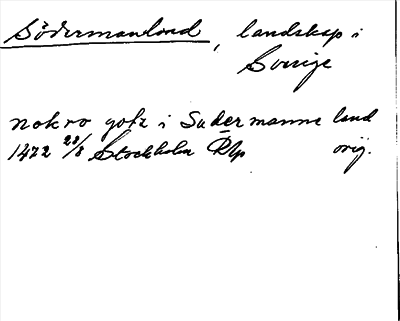 Södermanland, landskap i
Sverige
nokro gotz i Sudermanne land
1472 28/8 Stockholm Rp orig.